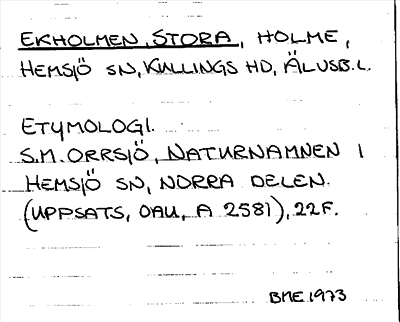 EKHOLMEN, STORA, HOLME,
HEMSJÖ SN, KULLINGS HD, ÄLVSB. L.
ETYMOLOGI.
S.M. ORRSJÖ, NATURNAMNEN I
HEMSJÖ SN, NORRA DELEN.
(UPPSATS, OAU, A 2581), 22F.
BME 1973